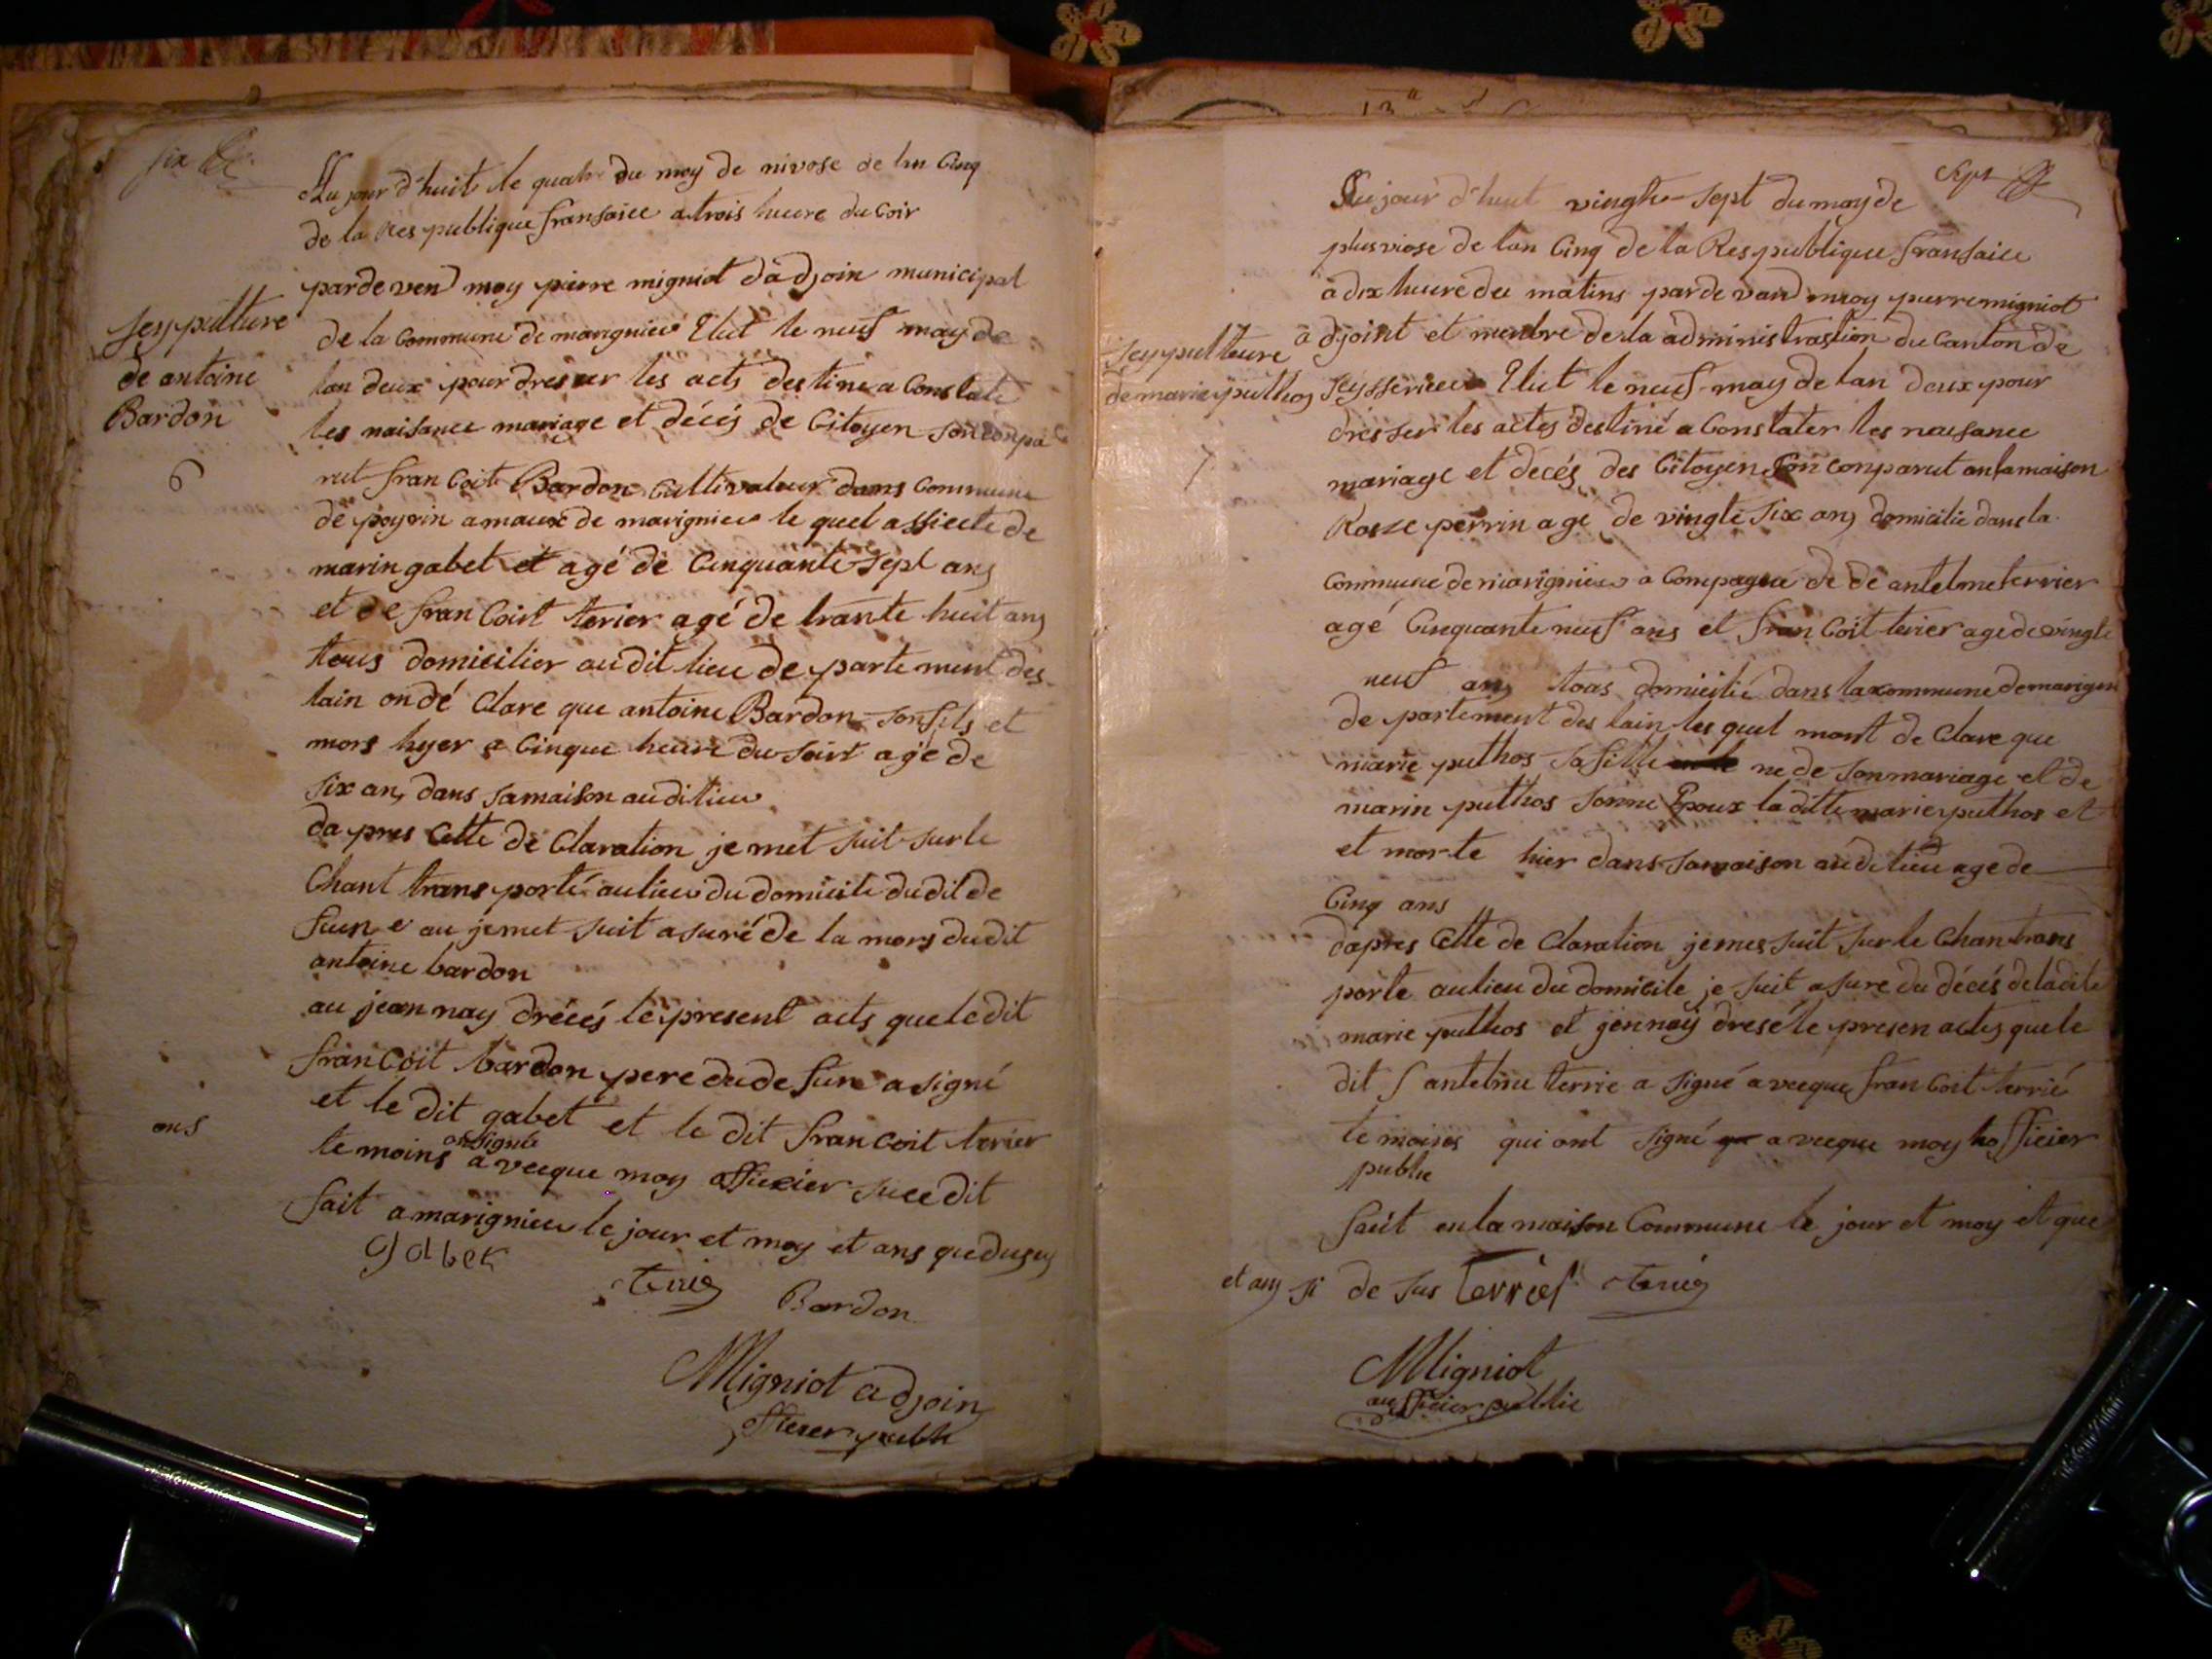 six
Au jour d'huit le quatre du moy de nivose de lan Cinq
de la Res publique fransaice a trois heure du Coir
pardeven moy pierre migniot d'adjoin municipal
de la Commune de marignieu Elut le neuf may de
lan deux pour dresser les acts destine a Constate
les naisance mariage et décés de Citoyen son conpa
rut fran Coit Bardon Cultivateur dans Commune
de poyrin a maux de marignieu le quel assiecte de
marin gabet et agé de Cinquante sept ans
et de fran Coist terier agé de trante huit ans
tous domicilier audit lieu de parte ment des
lain on dé Clare que antoine Bardon son fils et
mors hyer a Cinque heure du soirt agé de
six an, dans sa maison audit lieu
da pres Cette de Claration je met suit sur le
Chant trans porté au lieu du domicile dudit de
fune au je met suit asuré de la mors dudit
antoine bardon
au jean nay drécés le present acts que le dit
franCoit bardon pere du de fune a signé
et le dit gabet et le dit fran Coit terier
te moins on signé avecque moy afficier suce dit
fait a marignieu le jour et moy et ans que dusus
gabet
terié
Bardon
Migniot adjoin
officier public
Seypulture
de antoine
Bardon
6
ons
Sept
Au jour d'huit vingte sept du moy de
pluviose de lan Cinq de la Res publique fransaice
a dix heure de matins par de vand moy pierre migniot
a djoint et menbre de la administrastion du Canton de
Seysserieu Elut le neuf may de lan deux pour
drésser les actes destiné a Constater les naisance
mariage et decés des Citoyen son conparut an la maison
Rosze perrin age de vingte six ans domicilie dans la
Commune de marignieu a Compagné de de antelme terrier
agé Cinquante neuf ans et fran Coit terier age de vingte
neuf ans tous domicilié dans la kommune de marignieu
de partement des lain les quel mont de Clare que
marie puthos sa fille ne de son mariage et de
marin puthos sonne Epoux la ditte marie puthos et
et morte hier dans sa maison audit lieu age de
Cinq ans
dapres Cette de Claration je mes suit sur le Chan trans
porte au lieu du domicile je suit asure du décés de ladite
marie puthos et jen nay dresé le presen actes que le
dit S antelme terrie a signé avecque fran Coit terrié
te moines qui ont signé avecque moy ho fficier
public
fait en la maison Commune le jour et moy et que
et ans si de sus terrier terié
Migniot
au fficier public
Seypulteure
de marie puthos
7